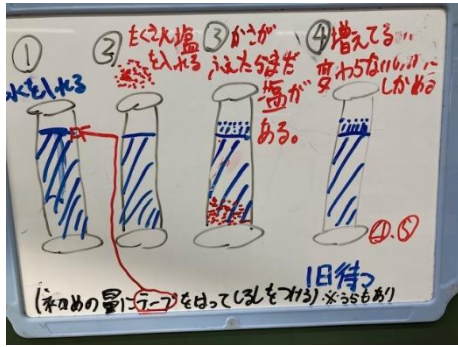 ①
水を入れる
②
たくさん塩
を入れる
③かさが
ふえたらまだ
塩が
ある。
④増えてる…
変わらない…
しかめる
④、⑤
1日待つ
(初めの量にテープをはってしるしをつける) ※うちもあり